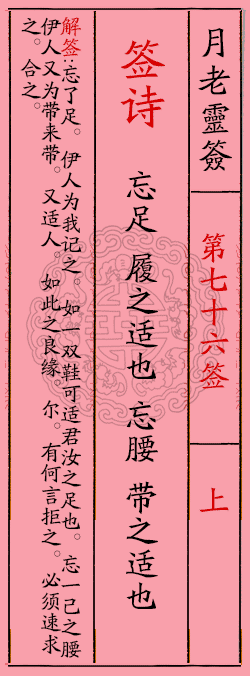 月老靈簽
第七十六签
上
签诗
忘足 履之适也 忘腰 带之适也
解签:忘了足。伊人为我记之。如一双鞋可适君汝之足也。忘一己之腰
伊人又为带来带。又适人。如此之良缘。尔。有何言拒之。必须速求
之。合之。